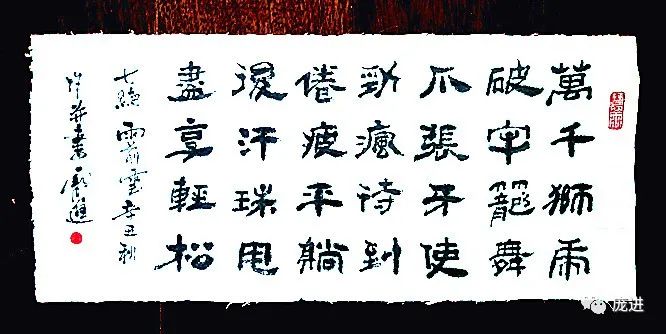 萬千獅虎
破牢籠舞
爪張牙使
勁瘋待到
倦疲平躺
後汗珠甩
盡享輕松
七絶 雨前雲 辛丑秋
并書 龐進
庞进